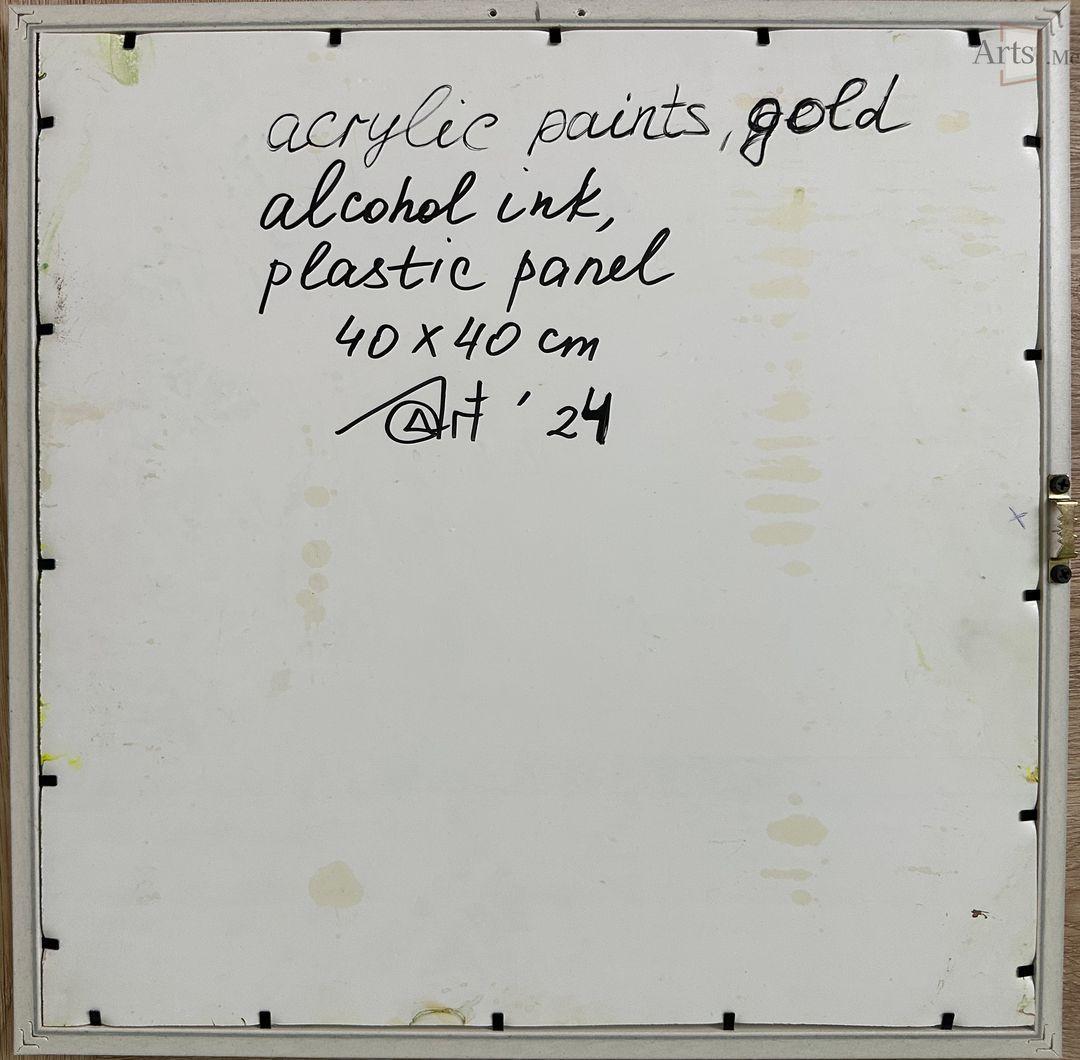 acrylic paints, gold
alcohol ink,
plastic panel
40 x 40 cm
Art '24
Arts
.Me